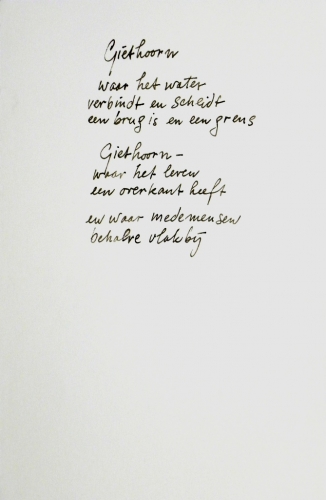 Giethoorn
waar het water
verbindt en scheidt
een brug is en een grens
Giethoorn -
waar het leven
een overkant heeft
en waar medemensen
behalve vlakbij